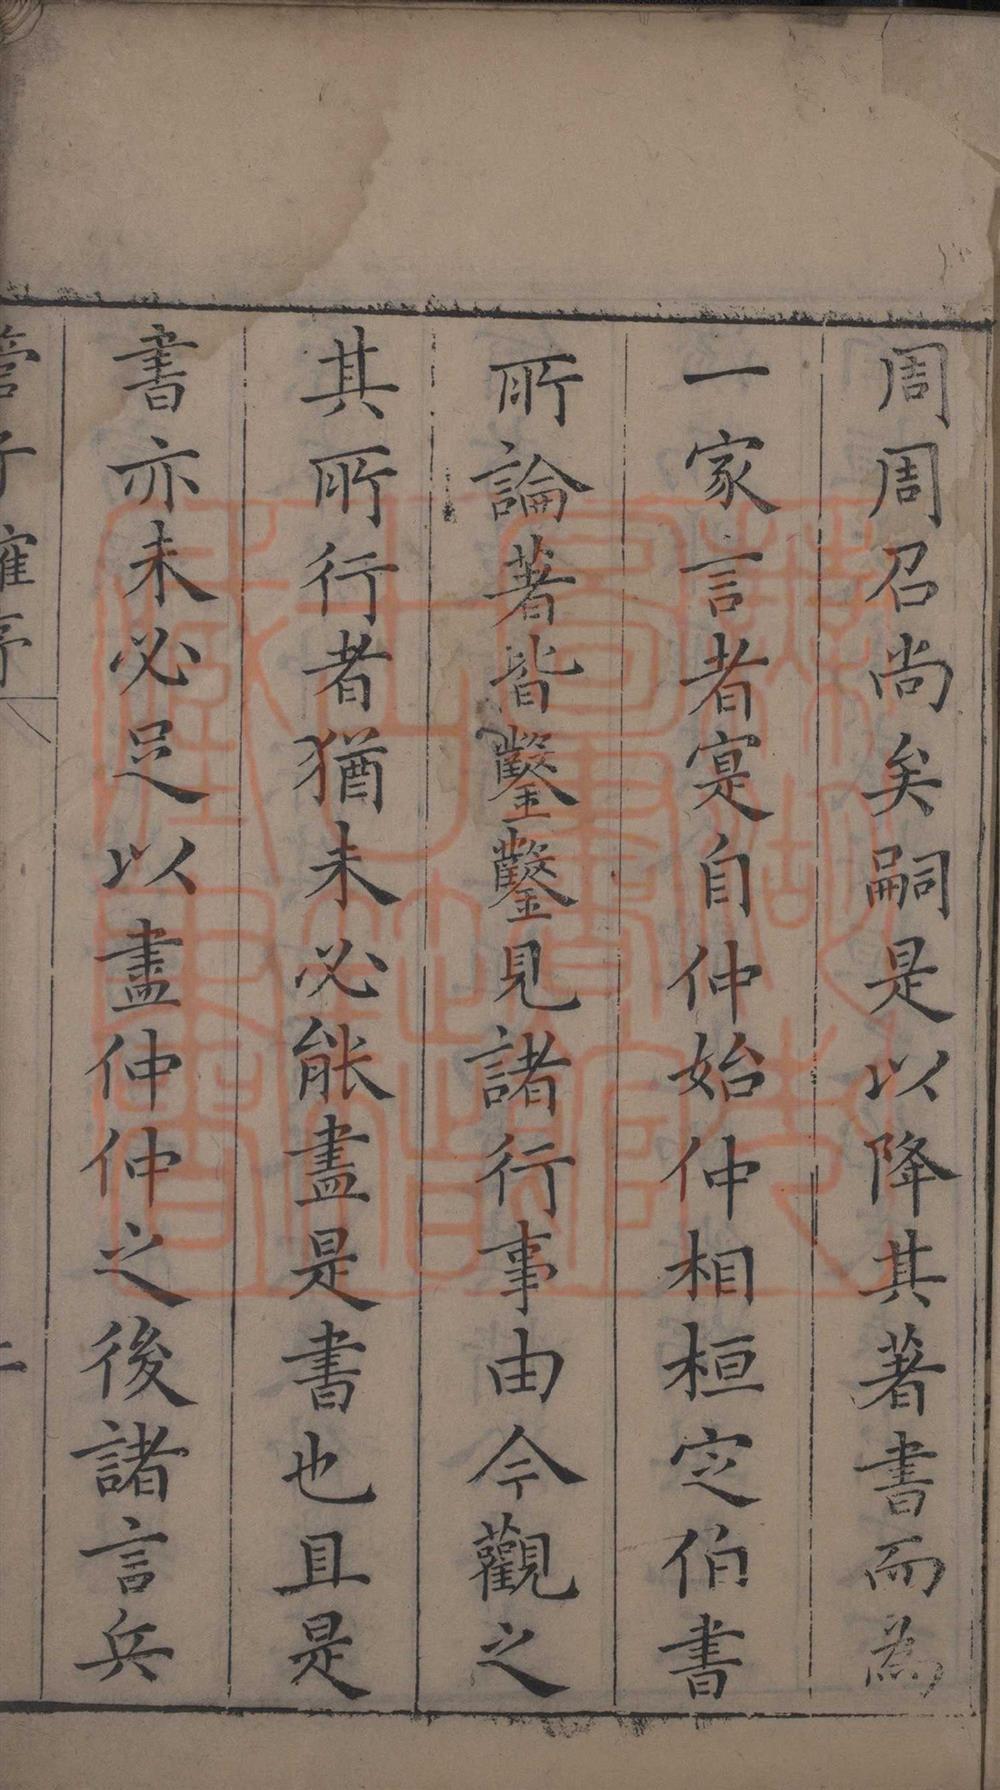 周周召尚矣嗣是以降其著書而為
一家言者寔自仲始仲相桓定伯書
所論著皆鑿鑿見諸行事由今觀之
其所行者猶未必能盡是書也且是
書亦未必足以盡仲仲之後諸言兵
管子㩁序